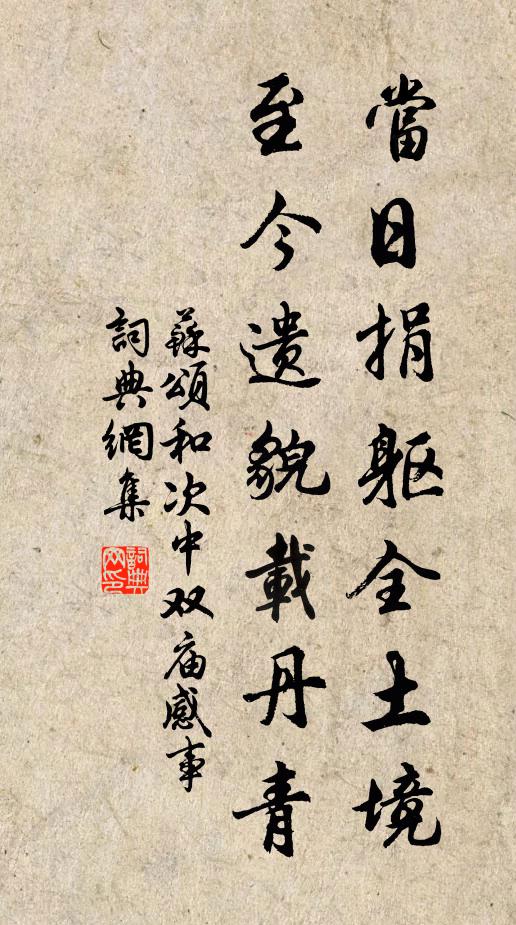 當日捐躯全土境
至今遗貌載丹青
蘇頌和次中双庙感事
詞典網集
詞典网印